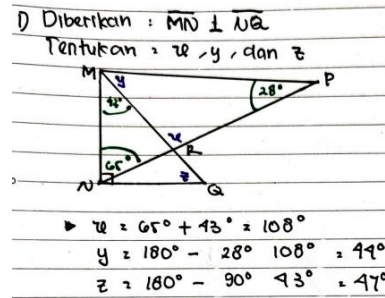 1) Diberikan : MN ⊥ NQ
Tentukan : x, y, dan z
M
y
43°
28°
P
x
R
65°
N
z
Q
▸ x = 65° + 43° = 108°
y = 180° - 28° 108° = 44°
z = 180° - 90° 43° = 47°